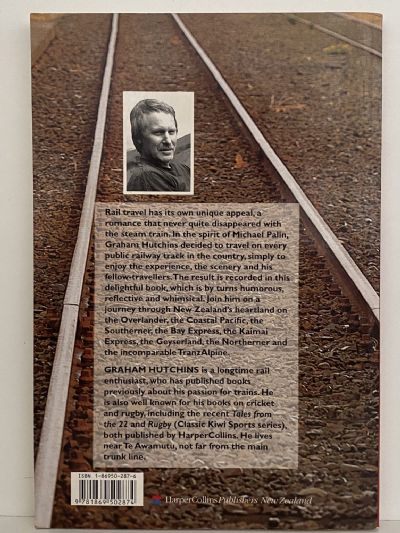 Rail travel has its own unique appeal, a
romance that never quite disappeared with
the steam train. In the spirit of Michael Palin,
Graham Hutchins decided to travel on every
public railway track in the country, simply
to enjoy the experience, the scenery and his
fellow-travellers. The result is recorded in this
delightful book, which is by turns humorous,
reflective and whimsical. Join him on a
journey through New Zealand's heartland on
the Overlander, the Coastal Pacific, the
Southerner, the Bay Express, the Kaimai
Express, the Geyserland, the Northerner and
the incomparable TranzAlpine.
GRAHAM HUTCHINS is a longtime rail
enthusiast, who has published books
previously about his passion for trains. He
is also well known for his books on cricket
and rugby, including the recent Tales from
the 22 and Rugby (Classic Kiwi Sports series),
both published by HarperCollins. He lives
near Te Awamutu, not far from the main
trunk line.
ISBN 1-86950-287-6
9 781869 502874
HarperCollinsPublishers New Zealand